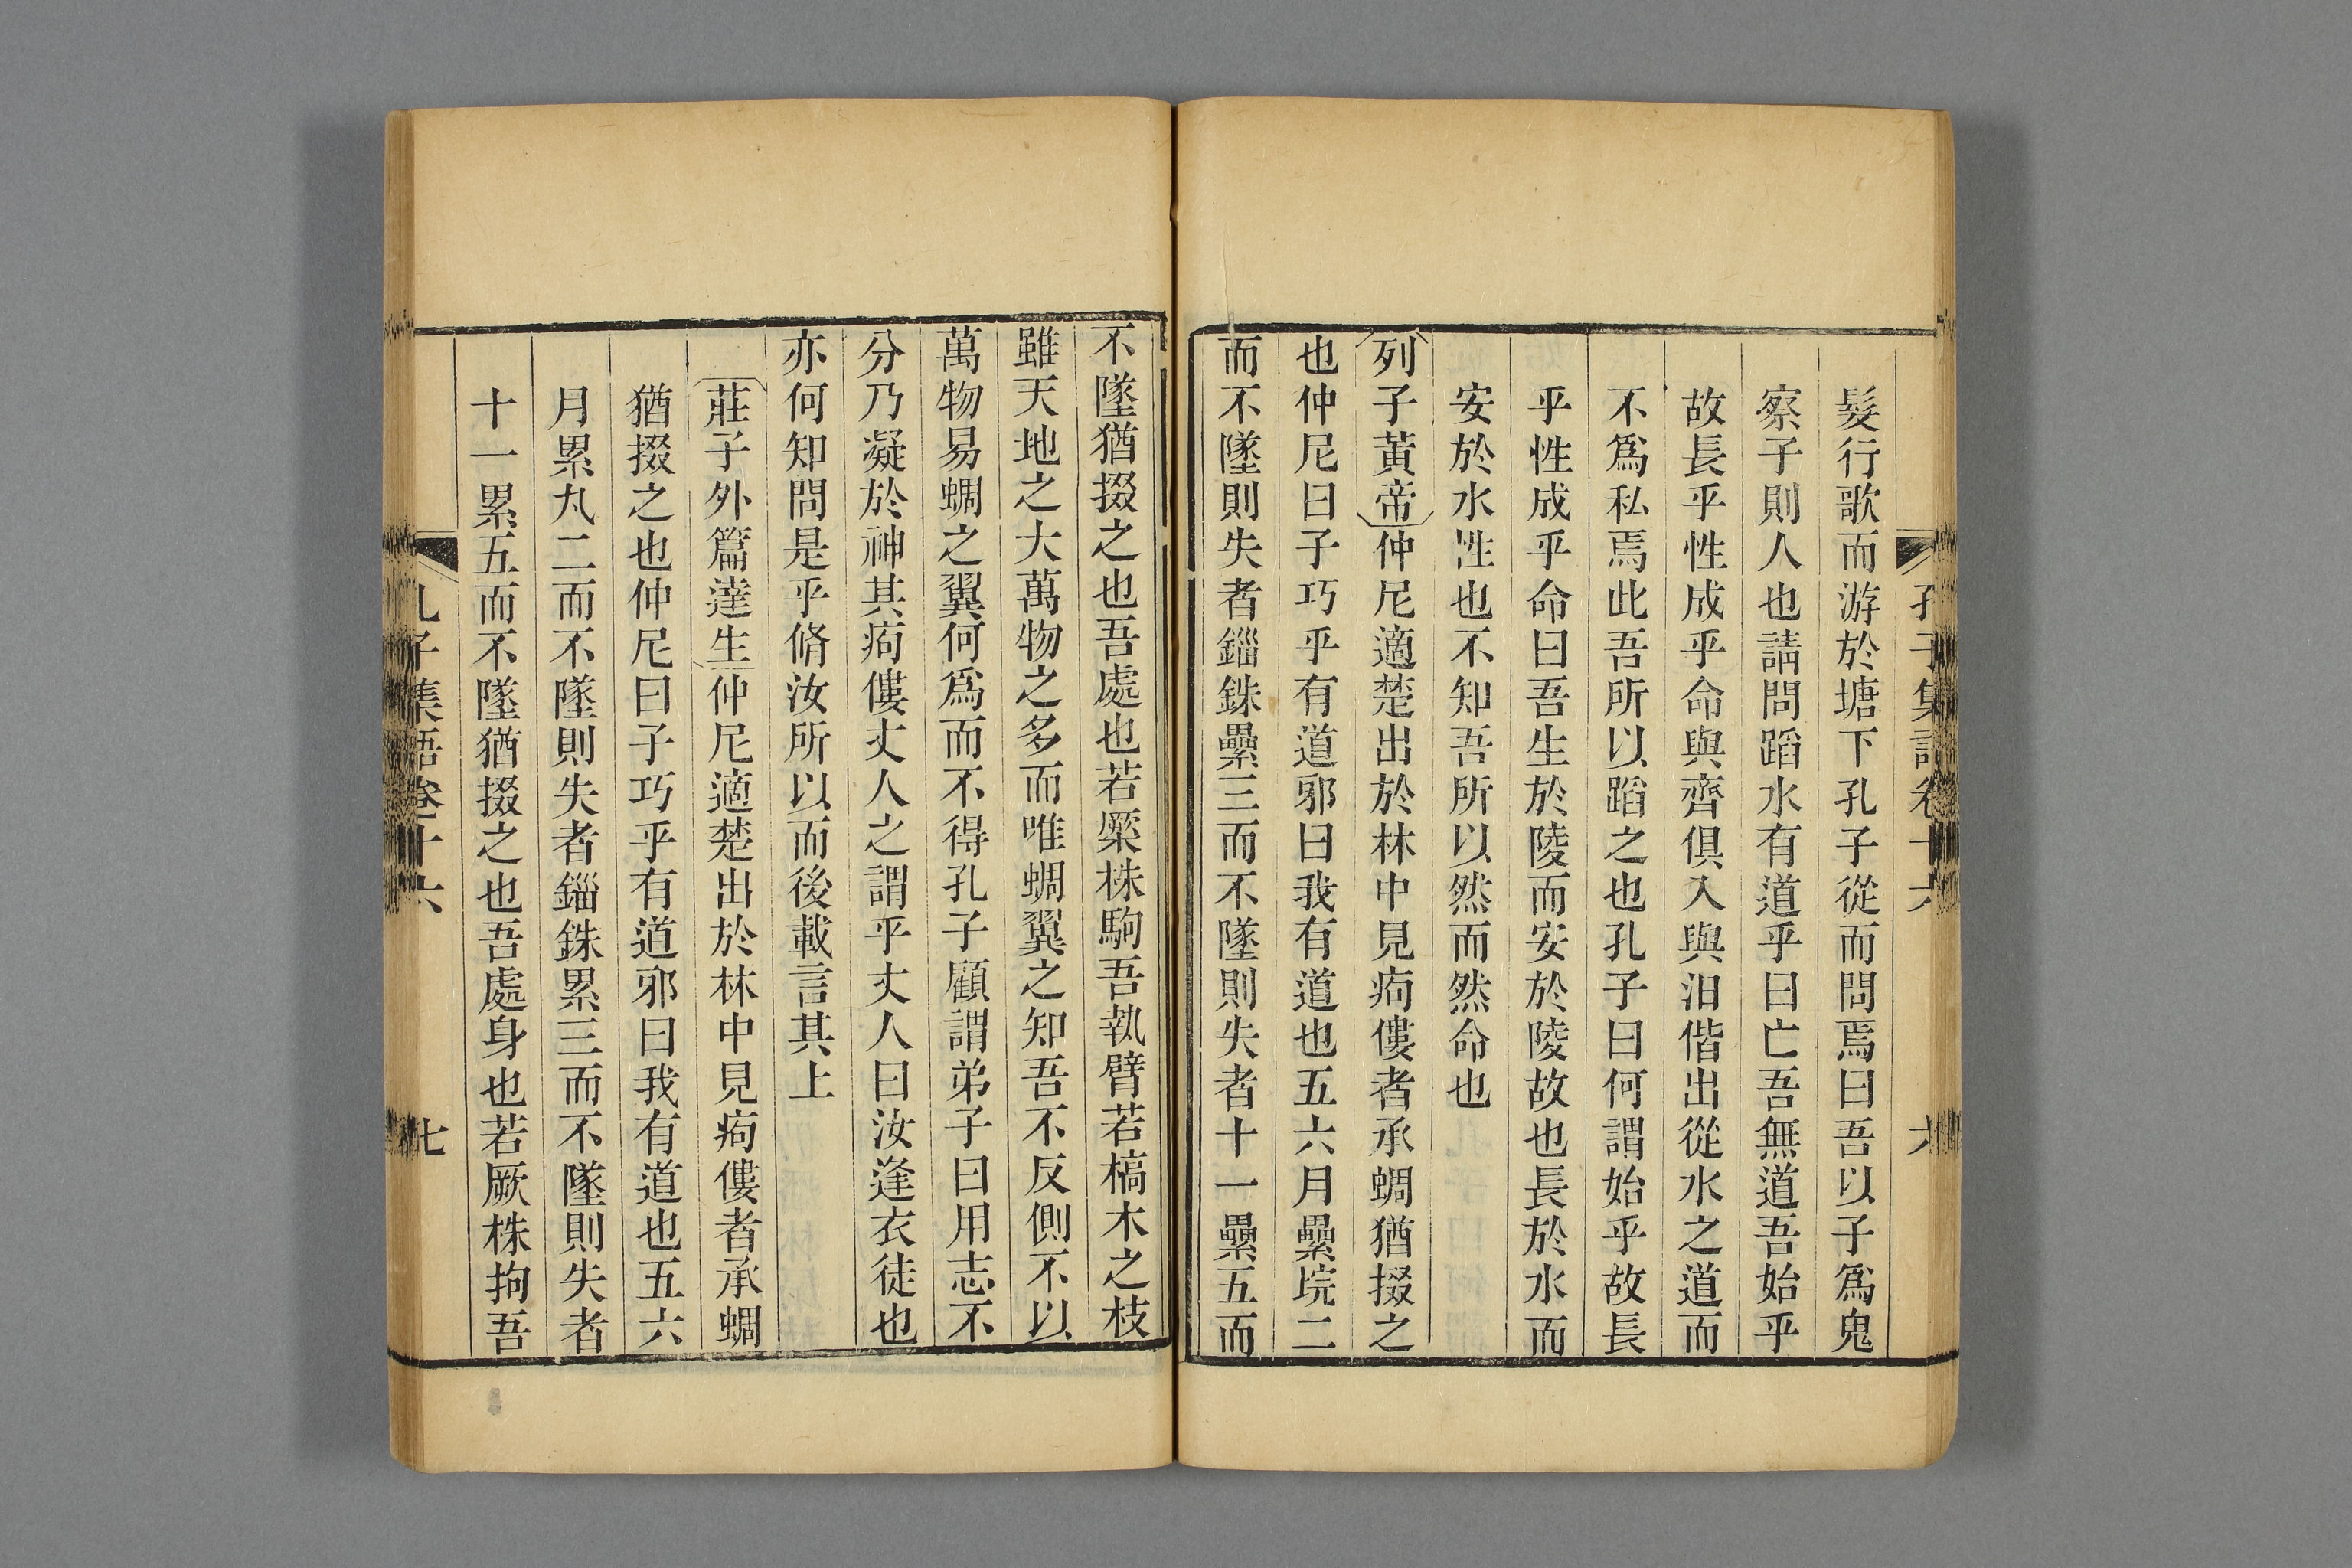 孔子集語卷十六 六
髮行歌而游於塘下孔子從而問焉曰吾以子爲鬼
察子則人也請問蹈水有道乎曰亡吾無道吾始乎
故長乎性成乎命與齊俱入與汩偕出從水之道而
不爲私焉此吾所以蹈之也孔子曰何謂始乎故長
乎性成乎命曰吾生於陵而安於陵故也長於水而
安於水性也不知吾所以然而然命也
列子黃帝仲尼適楚出於林中見痀僂者承蜩猶掇之
也仲尼曰子巧乎有道邪曰我有道也五六月纍垸二
而不墜則失者錙銖纍三而不墜則失者十一纍五而
不墜猶掇之也吾處也若橜株駒吾執臂若槁木之枝
雖天地之大萬物之多而唯蜩翼之知吾不反側不以
萬物易蜩之翼何爲而不得孔子顧謂弟子曰用志不
分乃凝於神其痀僂丈人之謂乎丈人曰汝逢衣徒也
亦何知問是乎脩汝所以而後載言其上
莊子外篇達生仲尼適楚出於林中見痀僂者承蜩
猶掇之也仲尼曰子巧乎有道邪曰我有道也五六
月累丸二而不墜則失者錙銖累三而不墜則失者
十一累五而不墜猶掇之也吾處身也若厥株拘吾
孔子集語卷十六 七